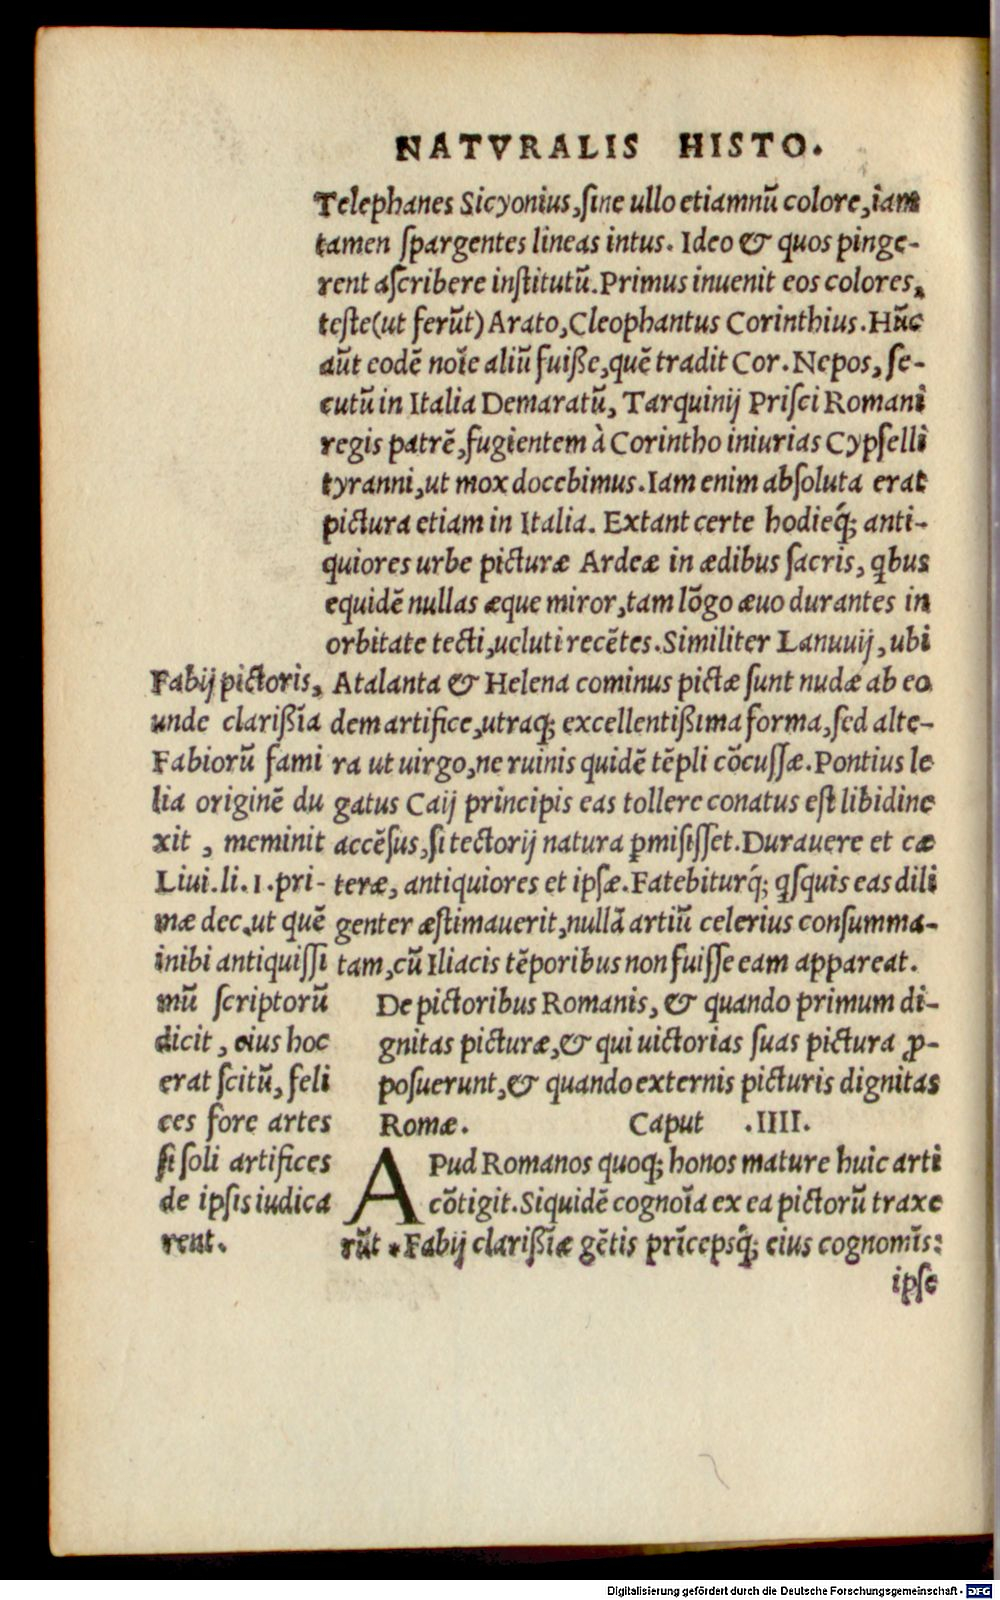 NATVRALIS HISTO.
Telephanes Sicyonius,ſine ullo etiamnū colore,iam
tamen ſpargentes lineas intus. Ideo & quos pinge-
rent aſcribere inſtitutū.Primus inuenit eos colores,
teſte(ut ferūt) Arato,Cleophantus Corinthius.Hūc
aūt eodē noīe aliū fuiße,quē tradit Cor. Nepos, ſe-
cutū in Italia Demaratū, Tarquinij Priſci Romani
regis patrē,fugientem à Corintho iniurias Cypſelli
tyranni,ut mox docebimus.Iam enim abſoluta erat
pictura etiam in Italia. Extant certe hodieq́; anti-
quiores urbe picturæ Ardeæ in ædibus ſacris, qbus
equidē nullas æque miror,tam lōgo æuo durantes in
orbitate tecti,ueluti recētes.Similiter Lanuuij, ubi
Atalanta & Helena cominus pictæ ſunt nudæ ab eo
dem artifice,utraq; excellentißima forma,ſed alte-
ra ut uirgo,ne ruinis quidē tēpli cōcuſſæ.Pontius le
gatus Caij principis eas tollere conatus eſt libidine
accēſus,ſi tectorij natura ꝑmiſiſſet.Durauere et cæ
teræ, antiquiores et ipſæ.Fatebiturq́; qſquis eas dili
genter æſtimauerit,nullā artiū celerius conſumma-
tam,cū Iliacis tēporibus non fuiſſe eam appareat.
Fabij pictoris,
unde clarißīa
Fabiorū fami
lia originē du
xit , meminit
Liui.li.1.pri-
mæ dec.ut quē
inibi antiquiſſi
mū ſcriptorū
dicit , eius hoc
erat ſcitū, feli
ces fore artes
ſi ſoli artifices
de ipſis iudica
rent.
De pictoribus Romanis, & quando primum di-
gnitas picturæ,& qui uictorias ſuas pictura ꝓ-
poſuerunt,& quando externis picturis dignitas
Romæ. Caput .IIII.
APud Romanos quoq; honos mature huic arti
cōtigit.Siquidē cognoīa ex ea pictorū traxe
rūt *Fabij clarißīæ gētis prīcepsq́; eius cognomīs:
ipſe
Digitalisierung gefördert durch die Deutsche Forschungsgemeinschaft - DFG